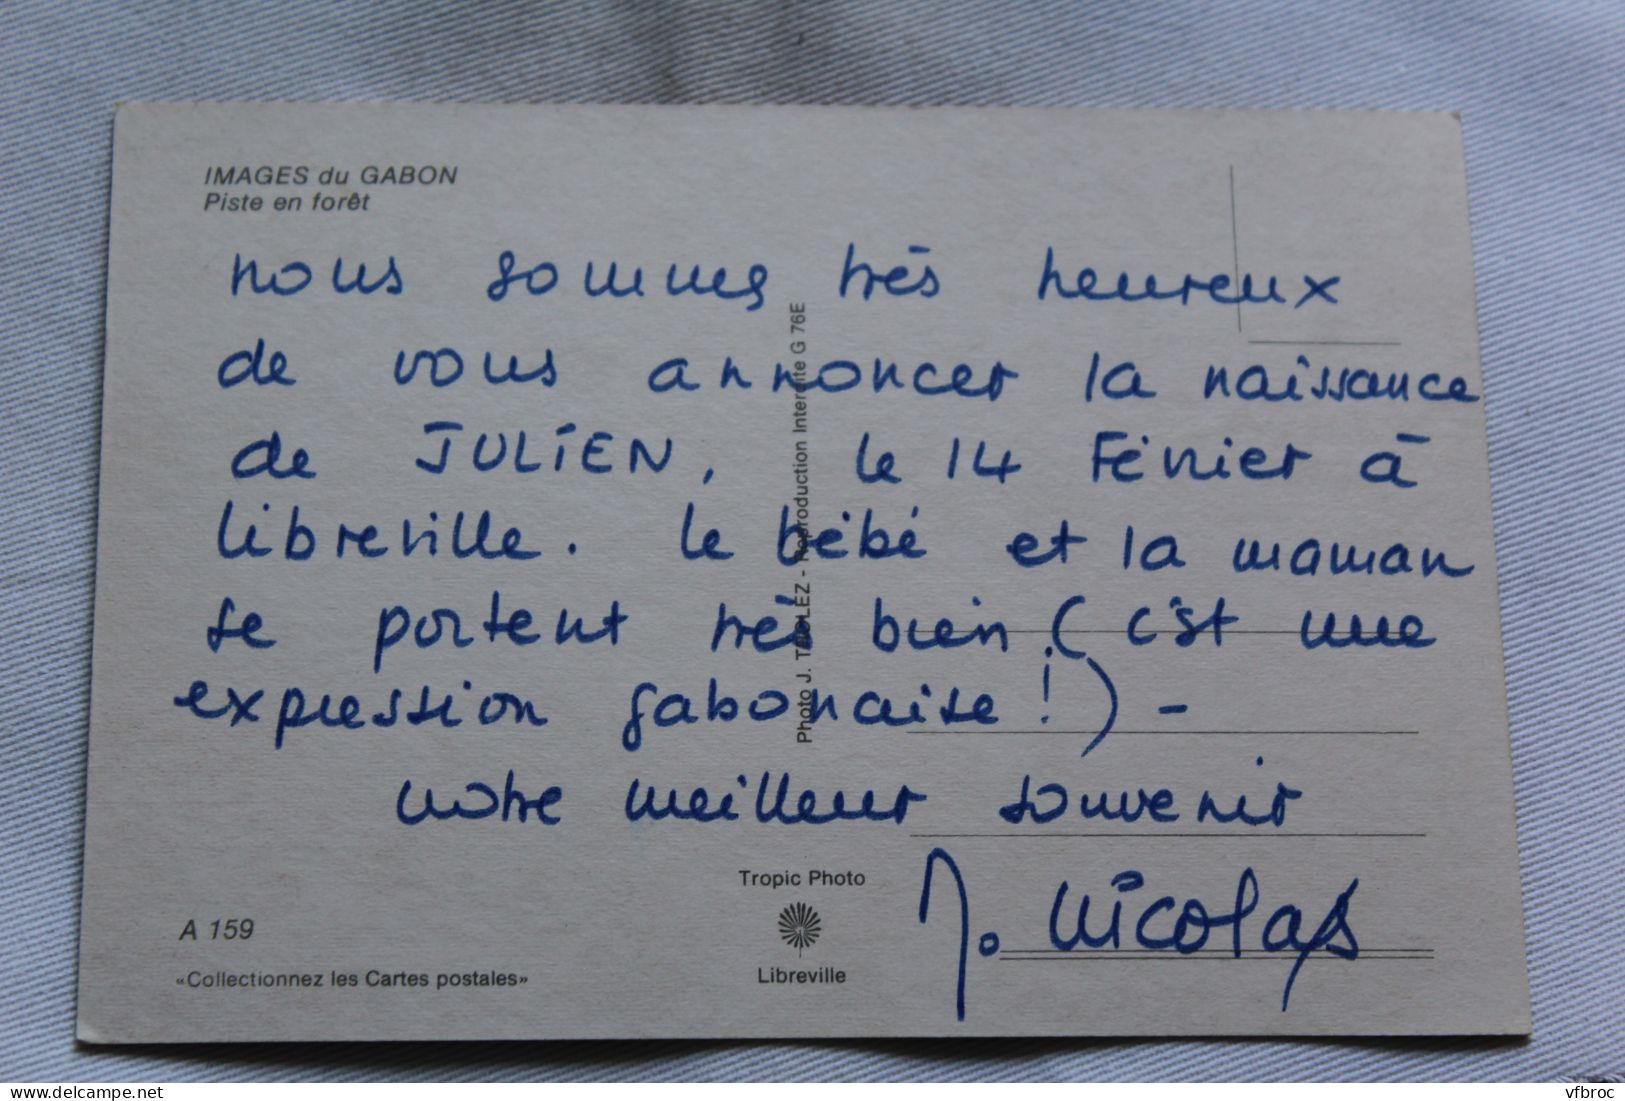 IMAGES du GABON
Piste en forêt
nous sommes très heureux
de vous annoncer la naissance
de JULIEN, le 14 Février à
Libreville. Le bébé et la maman
se portent très bien (c'est une
expression gabonaise !) -
notre meilleur souvenir
J. Nicolas
Photo J. TROLEZ - Reproduction Interdite G 76E
Tropic Photo
Libreville
A 159
«Collectionnez les Cartes postales»
delcampe.net
vfbroc